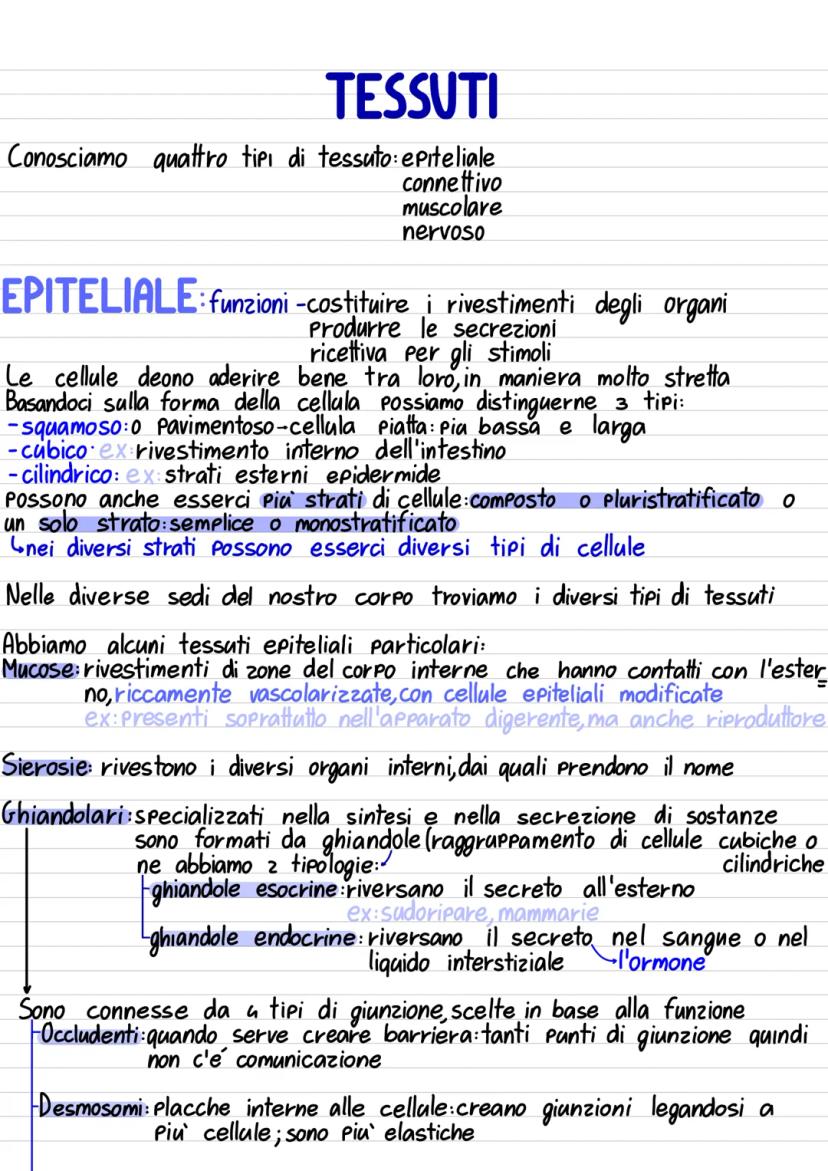 TESSUTI
Conosciamo quattro tipi di tessuto: epiteliale
connettivo
muscolare
nervoso
EPITELIALE: funzioni - costituire i rivestimenti degli organi
produrre le secrezioni
ricettiva per gli stimoli
Le cellule deono aderire bene tra loro, in maniera molto stretta
Basandoci sulla forma della cellula possiamo distinguerne 3 tipi:
- squamoso: o pavimentoso-cellula piatta: pia bassa e larga
- cubico· ex: rivestimento interno dell'intestino
- cilindrico: ex: strati esterni epidermide
possono anche esserci più strati di cellule: composto o pluristratificato o
un solo strato: semplice o monostratificato
↳nei diversi strati possono esserci diversi tipi di cellule
Nelle diverse sedi del nostro corpo troviamo i diversi tipi di tessuti
Abbiamo alcuni tessuti epiteliali particolari:
Mucose: rivestimenti di zone del corpo interne che hanno contatti con l'ester=
no, riccamente vascolarizzate, con cellule epiteliali modificate
ex: presenti soprattutto nell'apparato digerente, ma anche riproduttore
Sierosie: rivestono i diversi organi interni, dai quali prendono il nome
Ghiandolari: specializzati nella sintesi e nella secrezione di sostanze
sono formati da ghiandole (raggruppamento di cellule cubiche o
cilindriche
ne abbiamo 2 tipologie:
ghiandole esocrine: riversano il secreto all'esterno
ex: sudoripare, mammarie
ghiandole endocrine: riversano il secreto nel sangue o nel
liquido interstiziale → l'ormone
Sono connesse da 4 tipi di giunzione, scelte in base alla funzione
Occludenti: quando serve creare barriera: tanti punti di giunzione quindi
non c'é comunicazione
Desmosomi: placche interne alle cellule: creano giunzioni legandosi a
più cellule; sono più elastiche